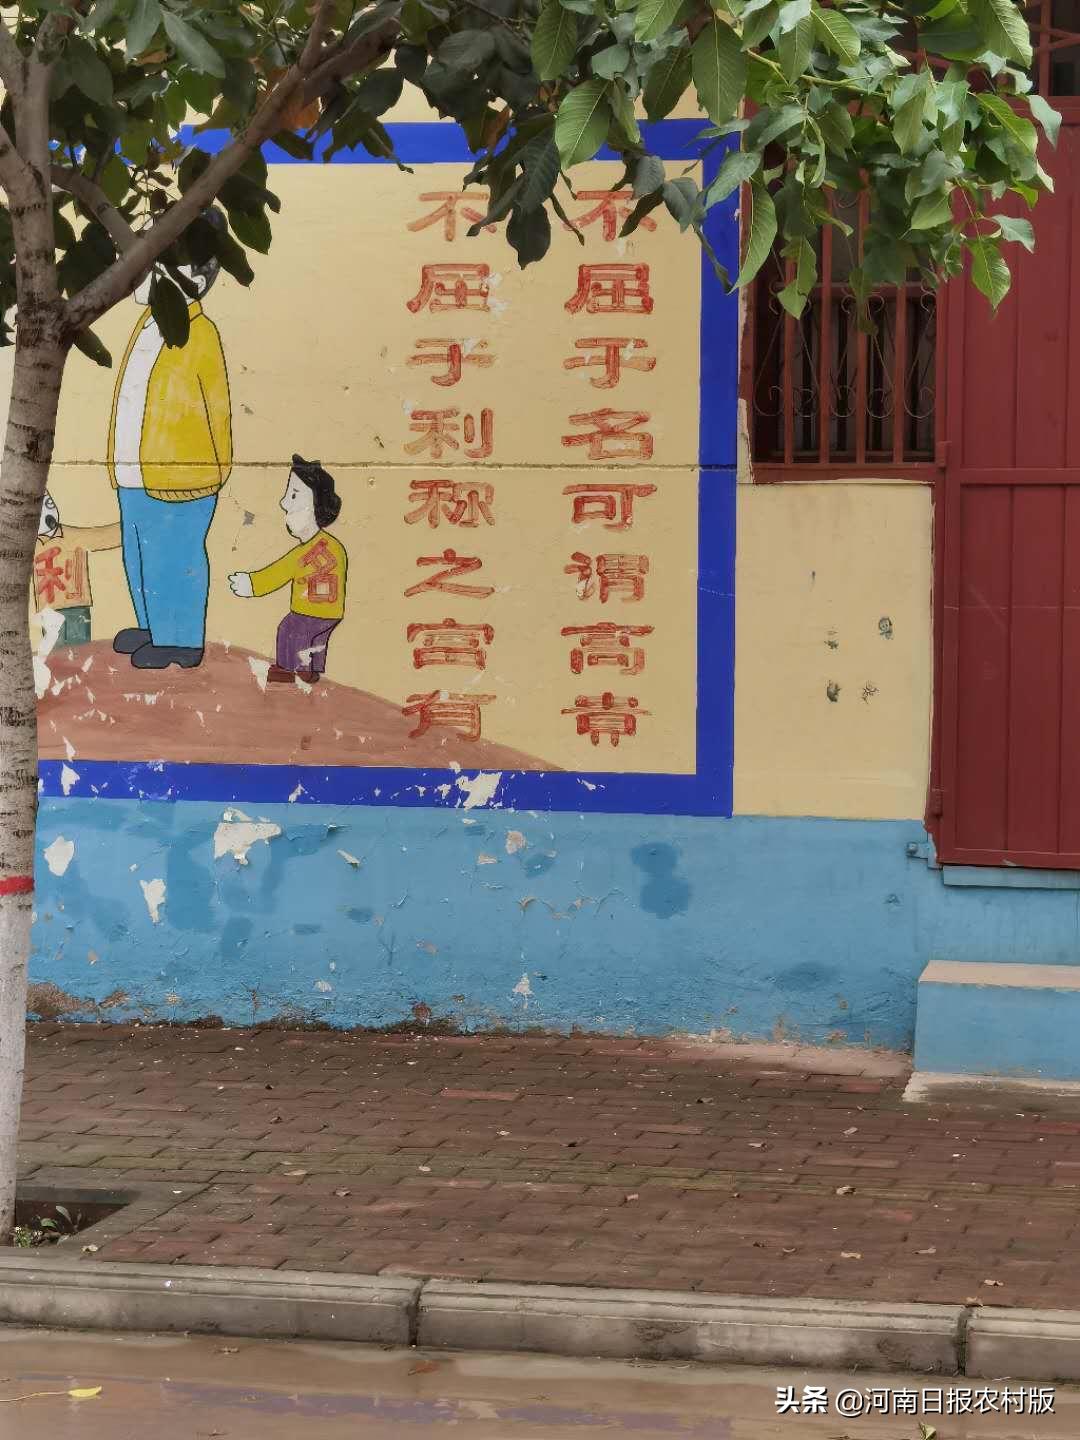 不屈于名可谓高贵
不屈于利称之富有
名
利
头条 @河南日报农村版